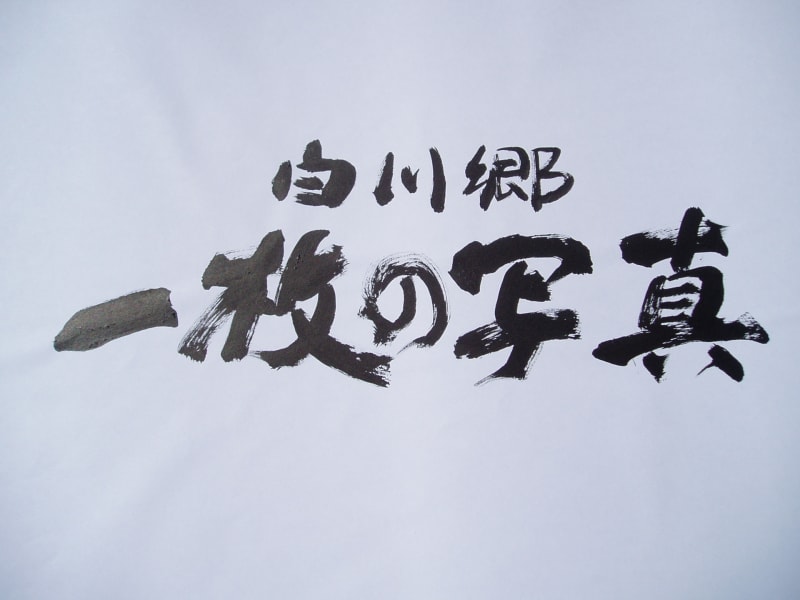 白川郷
一枚の写真